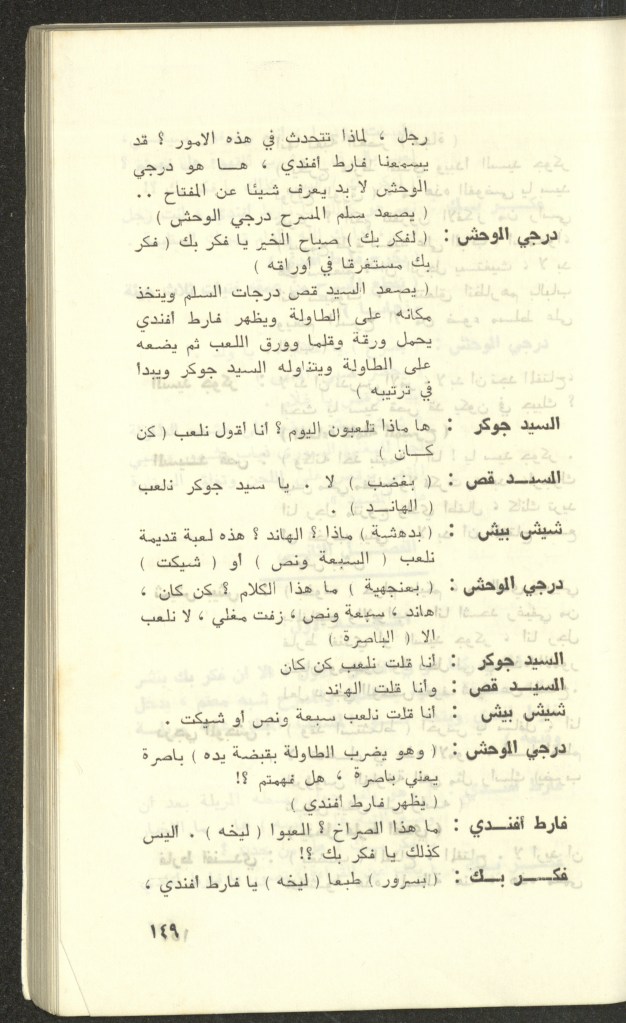 رجل ، لماذا تتحدث في هذه الامور ؟ قد
يسمعنا فارط افندي ، هـا هو درجي
الوحش لا بد يعرف شيئا عن المفتاح ..
( يصعد سلم المسرح درجي الوحش )
درجي الموحش : ( لفكر بك ) صباح الخير يا فكر بك ( فكر
بك مستغرقا في أوراقه )
( يصعد السيد قص درجات السلم ويتخذ
مكانه على الطاولة ويظهر فارط أفندي
يحمل ورقة وقلما وورق اللعب ثم يضعه
على الطاولة ويتناوله السيد جوكر ويبدا
في ترتيبه )
السيد جوكر : ها ماذا تلعبون اليوم ؟ انا اقول نلعب ( كن
كـــان )
السيــد قص : ( بغضب ) لا . يا سيد جوكر نلعب
( الهانــد ) .
شيش بيش : ( بدهشة ) ماذا ؟ الهاند ؟ هذه لعبة قديمة
نلعب ( السبعة ونص ) أو ( شيكت )
درجي الموحش : ( بعنجهية ) ما هذا الكلام ؟ كن كان ،
هاند ، سبعة ونص ، زفت مغلي ، لا نلعب
الا ( الباصرة )
السيد جوكر : أنا قلت نلعب كن كان
السيــد قص : وأنا قلت الهاند
شيش بيش : أنا قلت نلعب سبعة ونص أو شيكت .
درجي الموحش : ( وهو يضرب الطاولة بقبضة يده ) باصرة
يعني باصرة ، هل فهمتم ؟!
( يظهر فارط افندي )
فارط أفنــدي : ما هذا الصراخ ؟ العبوا ( ليخه ) . اليس
كذلك يا فكر بك ؟!
فكــــر بــك : ( بسرور ) طبعا ( ليخه ) يا فارط أفندي ،
١٤٩